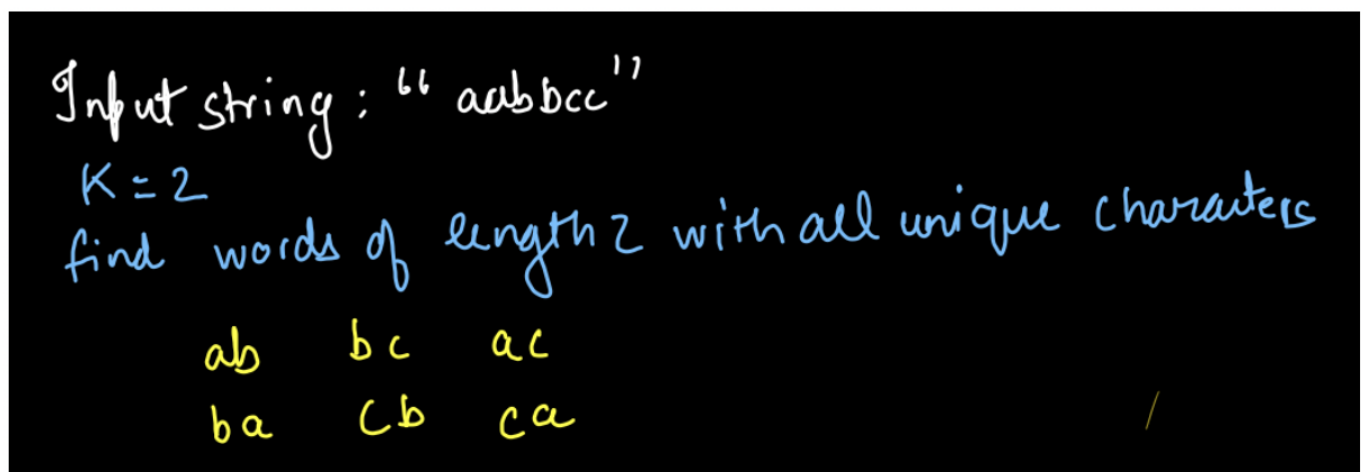 Input string : "aabbcc"
K = 2
find words of length 2 with all unique characters
ab bc ac
ba cb ca